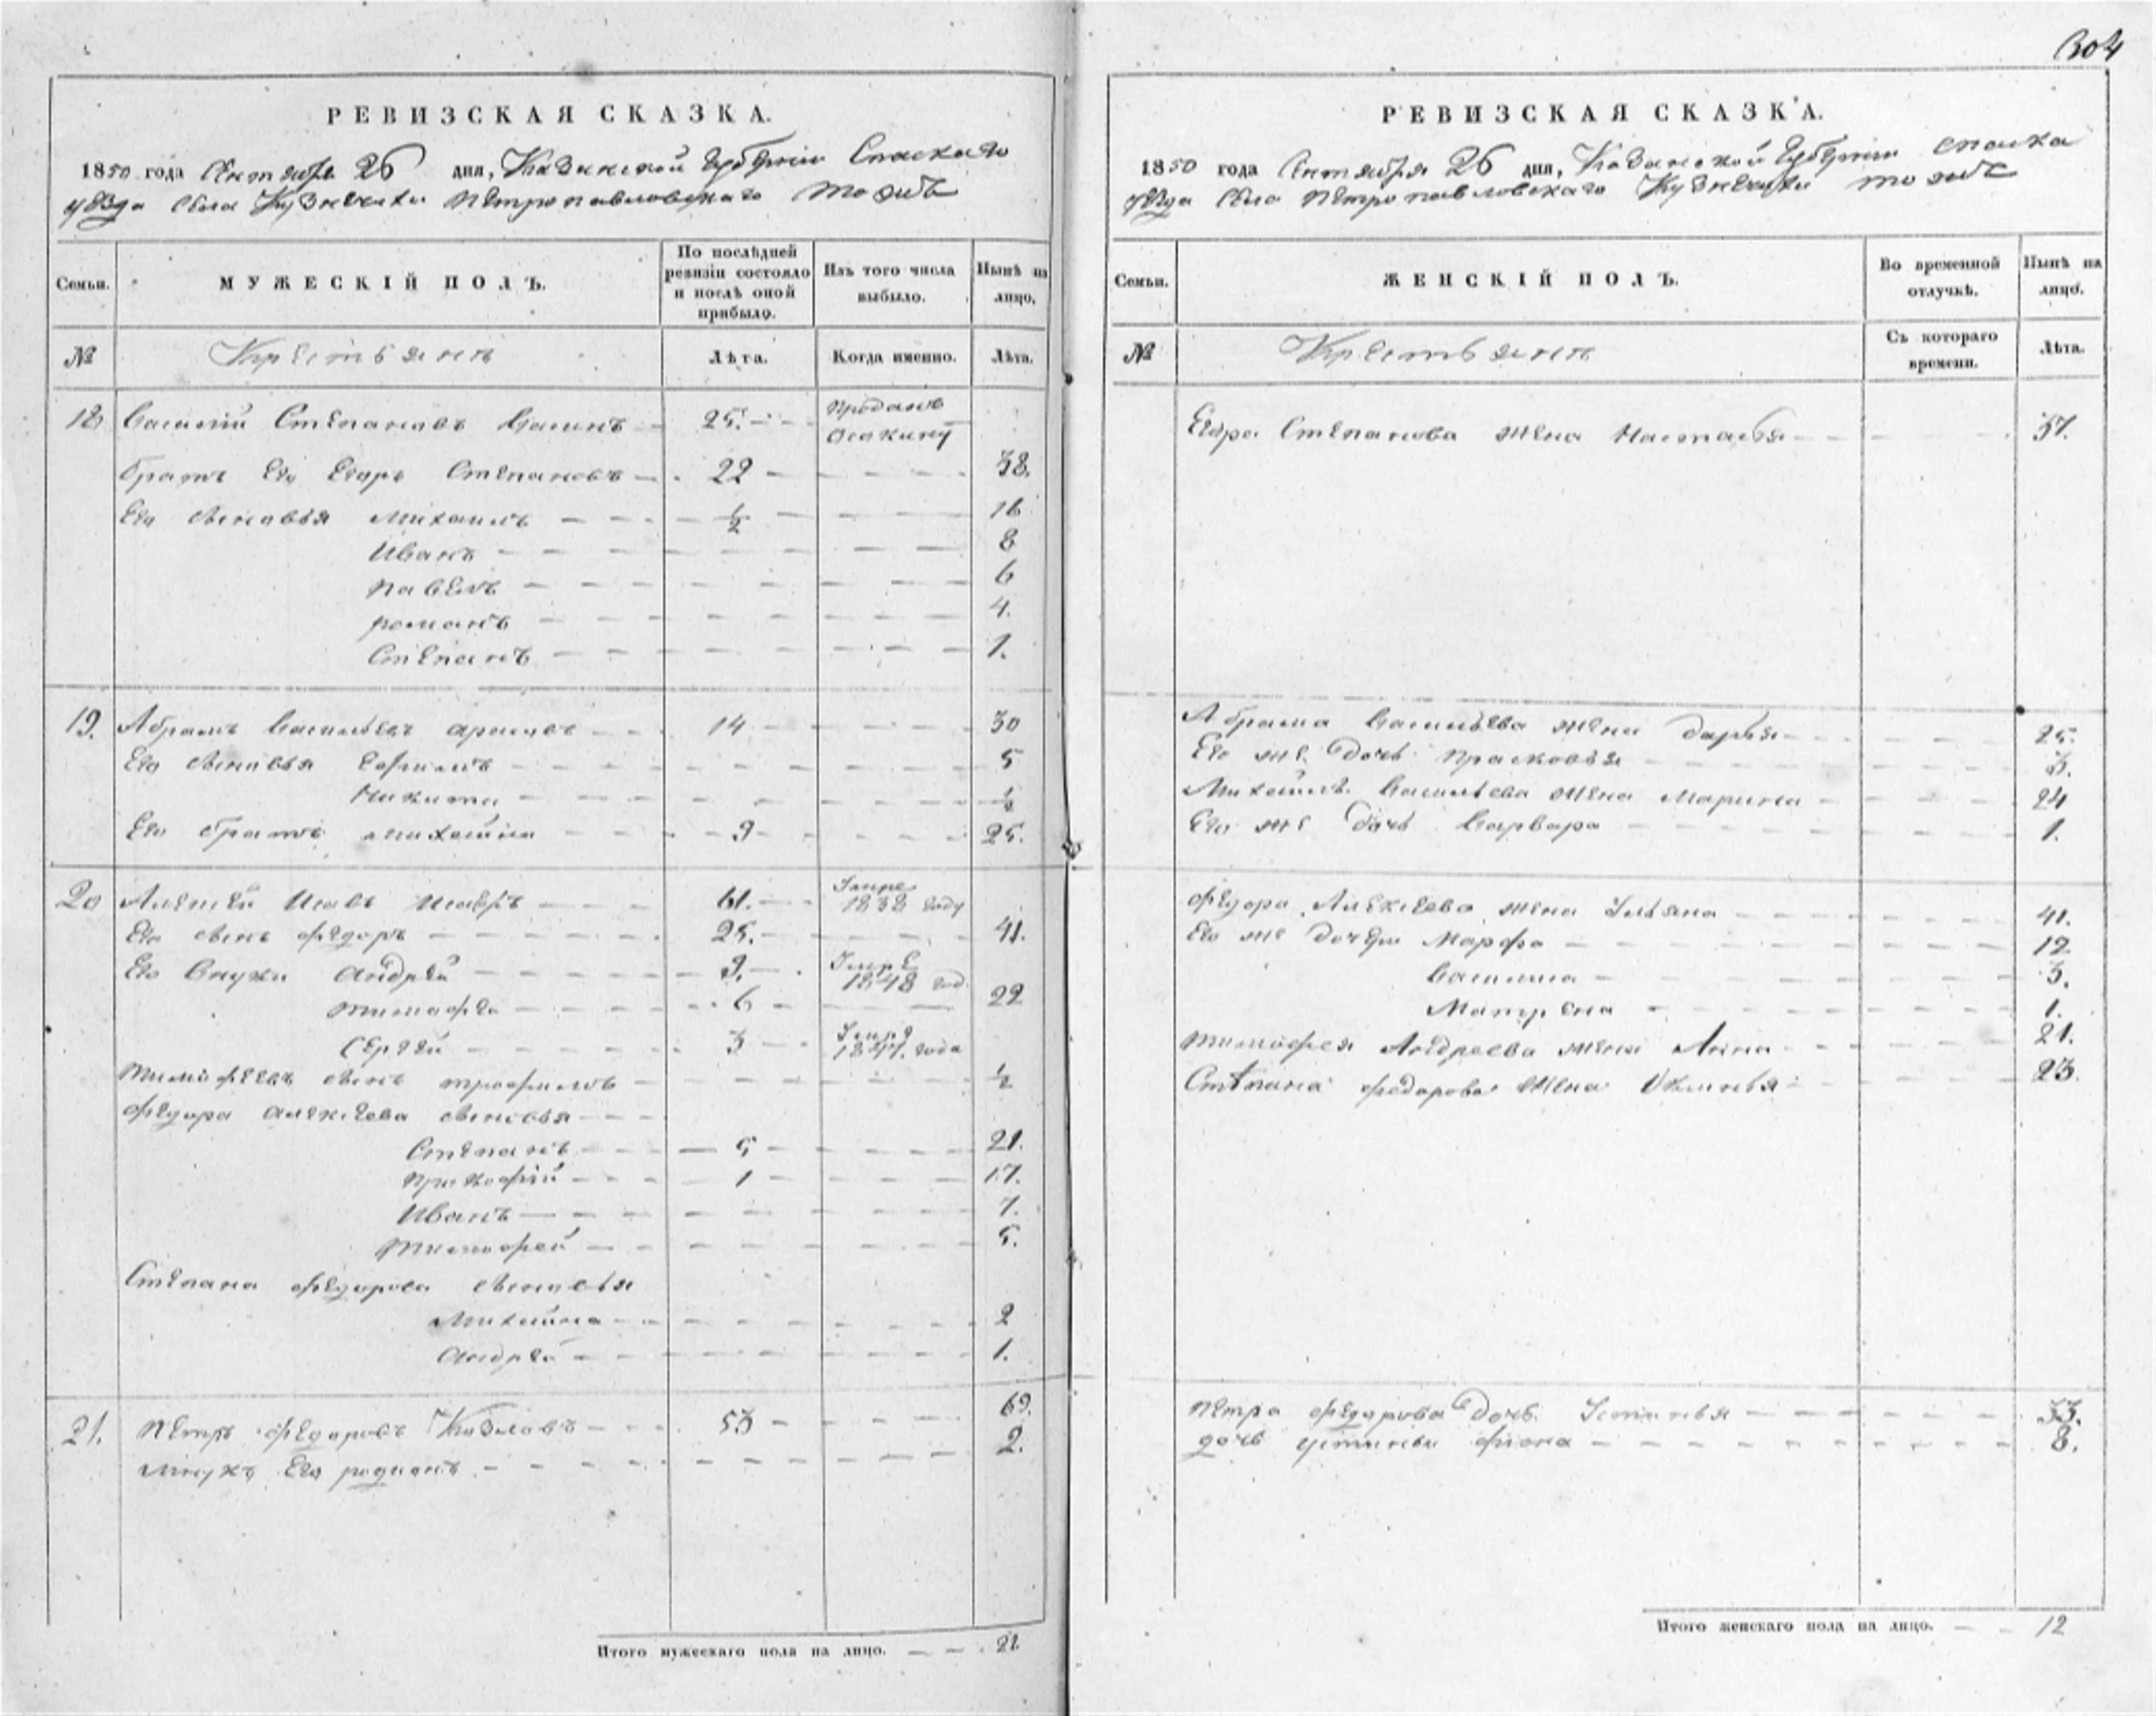 304
РЕВИЗСКАЯ СКАЗКА.
1850 года Октября 26 дня, Казанской Губернiи Спаскаго
уѣзда села Кузнечихи Петропавловскаго тожъ
Семьи. МУЖЕСКIЙ ПОЛЪ. По послѣдней ревизiи состояло и послѣ оной прибыло. Изъ того числа выбыло. Нынѣ на лицо.
№ Крестьянъ Лѣта. Когда именно. Лѣта.
18 Василий Степановъ 25. Проданъ
братъ Его Егоръ Степановъ 22 38.
Его сыновья Михаилъ 1/2 16
Иванъ 8
Павелъ 6
романъ 4.
Степанъ 1.
19. Абрамъ Васильевъ 14 30
Его сыновья Ефимъ 5
Никита 1/2
Его братъ михайла 9 25.
20 Алексѣй Исаевъ 61. Умре 1838 году
Его сынъ федоръ 25. 41.
Его Внуки Андрей 9. Умре 1848 год.
тимофей 6 22
Сергѣй 3 1847. года
тимофеевъ сынъ трофимъ 1/2
федора алексѣева сыновья
Степанъ 5 21.
Прокофiй 1 17.
Иванъ 7.
тимофей 5.
Степана федорова сыновья
Михайла 2
Андрей 1.
21. петръ федоровъ Козловъ 53 69.
внукъ Его родионъ 2.
Итого мужескаго пола на лицо. 22
РЕВИЗСКАЯ СКАЗКА.
1850 года Октября 26 дня, Казанской Губернiи спаска
уѣзда села Петропавловскаго Кузнечихи тожъ
Семьи. ЖЕНСКIЙ ПОЛЪ. Во временной отлучкѣ. Нынѣ на лицо.
№ Крестьянъ Съ котораго времени. Лѣта.
Егора Степанова жена Настасья 37.
Абрама Васильева жена дарья 25.
Его же дочь прасковья 3.
Михаилъ Васильева жена Марина 24
Его же дочь Варвара 1.
федора Алексѣева жена Ульяна 41.
Его же дочери Марфа 12
Василиса 3.
Матрена 1.
тимофея Андреева жена Анна 21.
Степана федорова жена 23.
петра федорова дочь Устинья 33.
дочь устиньи 8.
Итого женскаго пола на лицо. 12